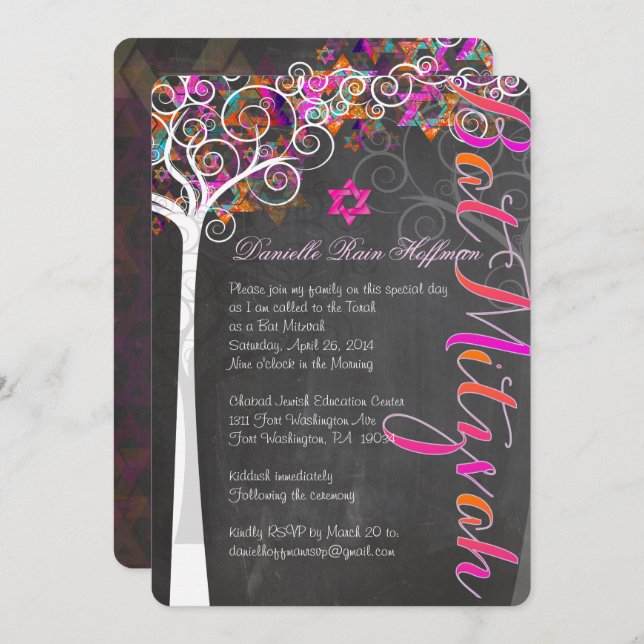 Bat Mitzvah
Danielle Rain Hoffman
Please join my family on this special day
as I am called to the Torah
as a Bat Mitzvah
Saturday, April 26, 2014
Nine o'clock in the Morning
Chabad Jewish Education Center
1311 Fort Washington Ave
Fort Washington, PA 19034
Kiddush immediately
Following the ceremony
Kindly RSVP by March 20 to:
danielhoffmanrsvp@gmail.com